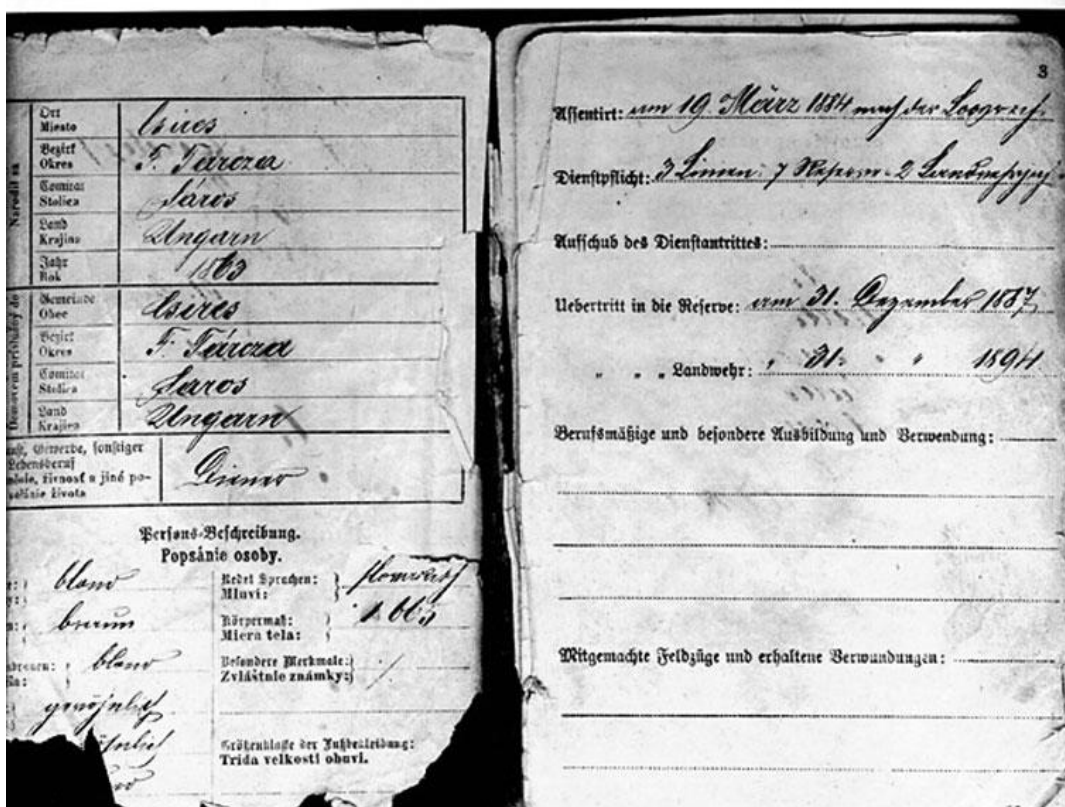 Narodil sa
Ort
Miesto
Csires
Bezirk
Okres
F. Tárcza
Comitat
Stolica
Sáros
Land
Krajina
Ungarn
Jahr
Rok
1863
Domovom príslušný do
Gemeinde
Obec
Csires
Bezirk
Okres
F. Tárcza
Comitat
Stolica
Saros
Land
Krajina
Ungarn
Gewerbe, sonstiger
Lebensberuf
živnosť a jiné po-
života
Diener
Persons-Beschreibung.
Popsánie osoby.
blond
braun
blond
gewöhnlich
Redet Sprachen:
Mluví:
slowakisch
Körpermaß:
Miera tela:
1.665
Besondere Merkmale:
Zvláštnie známky:
/
Größenklasse der Fußbekleidung:
Trida velkosti obuvi.
3
Assentirt: am 19 März 1884 nach der
Dienstpflicht: 3 Linien 7 Reserve 2 Landwehr
Aufschub des Dienstantrittes:
Uebertritt in die Reserve: am 31. Dezember 1887
" " " Landwehr: " 31. " " 1894
Berufsmäßige und besondere Ausbildung und Verwendung:
Mitgemachte Feldzüge und erhaltene Verwundungen: